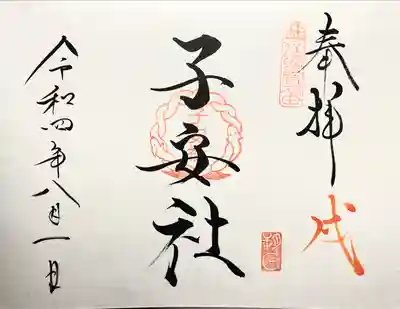 奉拝
戌
子安社
令和四年八月一日